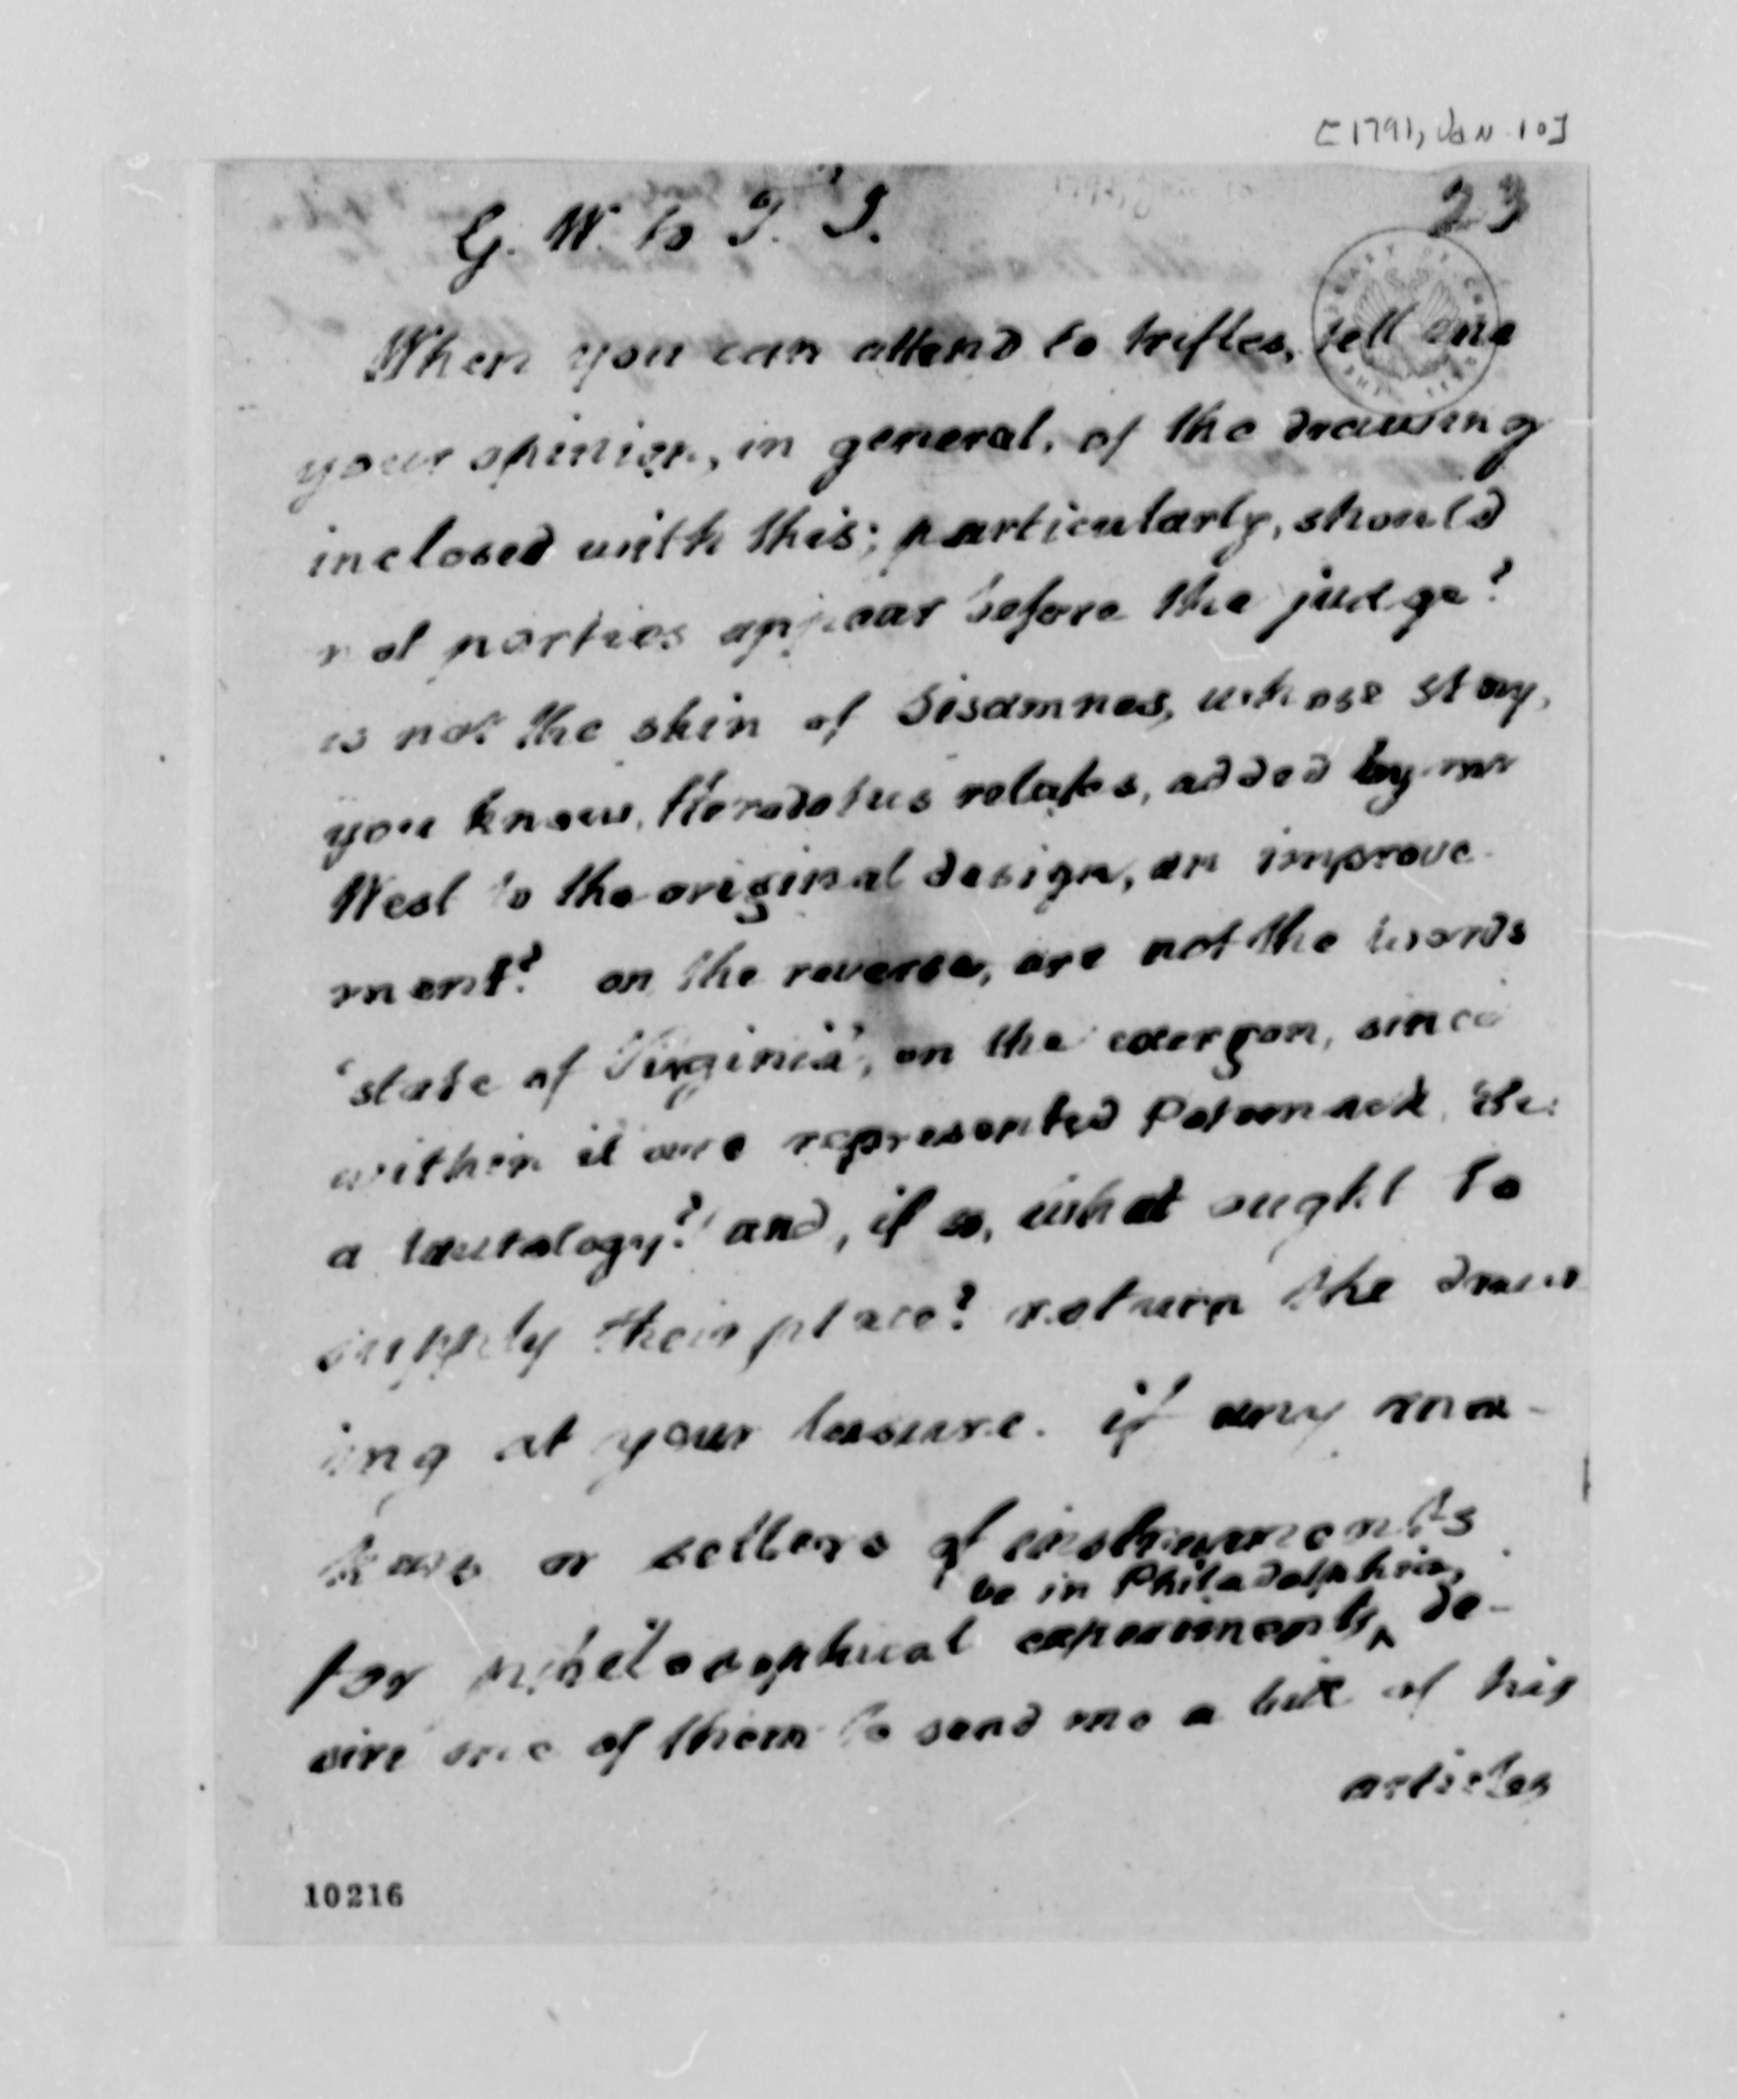 [1791, Jan. 10]
23
G. W. to T. J.
When you can attend to trifles, tell me
your opinion, in general, of the drawing
inclosed with this; particularly, should
not parties appear before the judge?
is not the skin of Sisamnes, whose story,
you know, Herodotus relates, added by mr
West to the original design, an improve-
ment? on the reverse, are not the words
'state of Virginia', on the exergon, since
within it are represented Potomack &c:
a tautology? and, if so, what ought to
supply their place? return the draw
ing at your leasure. if any ma-
kers or sellers of instruments
be in Philadelphia,
for philosophical experiments ^ de-
sire one of them to send me a list of his
articles
10216